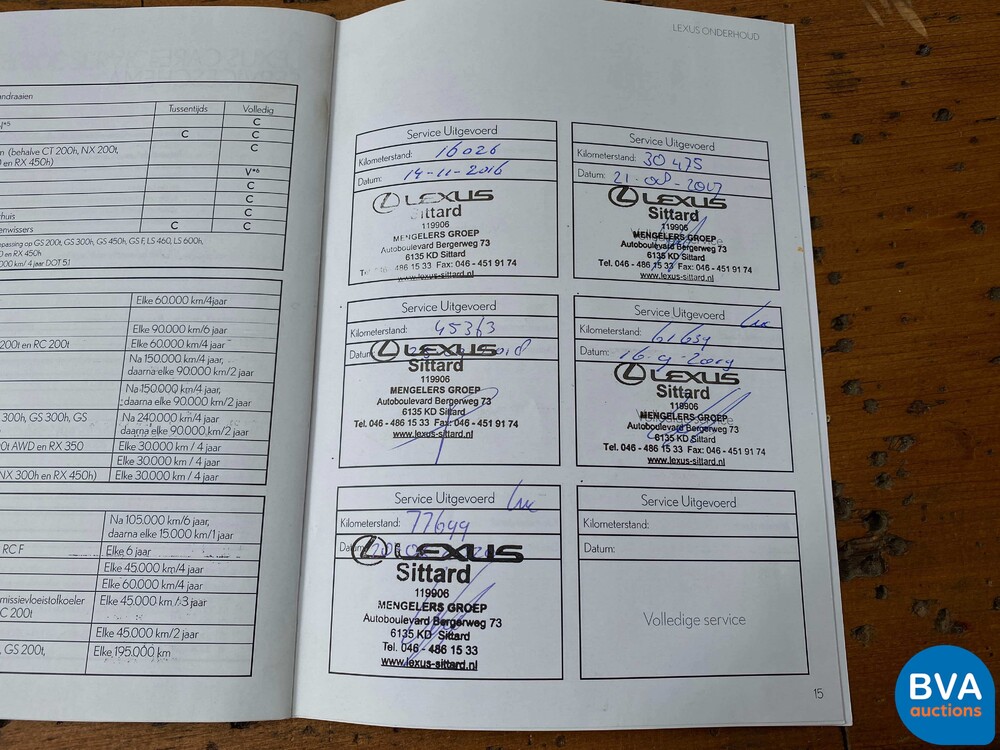 andraaien
Tussentijds Volledig
C
C C
en (behalve CT 200h, NX 200t, C
en RX 450h)
V*6
C
C
huis C
enwissers C C
epassing op GS 200t, GS 300h, GS 450h, GS F, LS 460, LS 600h,
en RX 450h
000 km/ 4 jaar DOT 5.1
Elke 60.000 km/4jaar
Elke 90.000 km/6 jaar
200t en RC 200t Elke 60.000 km/4 jaar
Na 150.000 km/4 jaar,
daarna elke 90.000 km/2 jaar
Na 150.000 km/4 jaar,
daarna elke 90.000 km/2 jaar
300h, GS 300h, GS Na 240.000 km/4 jaar
daarna elke 90.000 km/2 jaar
0t AWD en RX 350 Elke 30.000 km / 4 jaar
Elke 30.000 km / 4 jaar
NX 300h en RX 450h) Elke 30.000 km / 4 jaar
Na 105.000 km/6 jaar,
daarna elke 15.000 km/1 jaar
RC F Elke 6 jaar
Elke 45.000 km/4 jaar
Elke 60.000 km/4 jaar
missievloeistofkoeler Elke 45.000 km/3 jaar
C 200t
Elke 45.000 km/2 jaar
, GS 200t, Elke 195.000 km
LEXUS ONDERHOUD
Service Uitgevoerd
Kilometerstand: 16026
Datum: 14-11-2016
LEXUS
Sittard
119906
MENGELERS GROEP
Autoboulevard Bergerweg 73
6135 KD Sittard
486 15 33 Fax: 046 - 451 91 74
www.lexus-sittard.nl
Service Uitgevoerd
Kilometerstand: 30475
Datum: 21-08-2017
LEXUS
Sittard
119906
MENGELERS GROEP
Autoboulevard Bergerweg 73
6135 KD Sittard
Tel. 046 - 486 15 33 Fax: 046 - 451 91 74
www.lexus-sittard.nl
Service Uitgevoerd
Kilometerstand: 45363
Datum: 2018
LEXUS
Sittard
119906
MENGELERS GROEP
Autoboulevard Bergerweg 73
6135 KD Sittard
Tel. 046 - 486 15 33 Fax: 046 - 451 91 74
www.lexus-sittard.nl
Service Uitgevoerd
Kilometerstand: 61659
Datum: 16-9-2019
LEXUS
Sittard
119906
MENGELERS GROEP
Autoboulevard Bergerweg 73
6135 KD Sittard
Tel. 046 - 486 15 33 Fax: 046 - 451 91 74
www.lexus-sittard.nl
Service Uitgevoerd
Kilometerstand: 77699
LEXUS
Sittard
119906
MENGELERS GROEP
Autoboulevard Bergerweg 73
6135 KD Sittard
Tel. 046 - 486 15 33
www.lexus-sittard.nl
Service Uitgevoerd
Kilometerstand:
Datum:
Volledige service
15
BVA
auctions